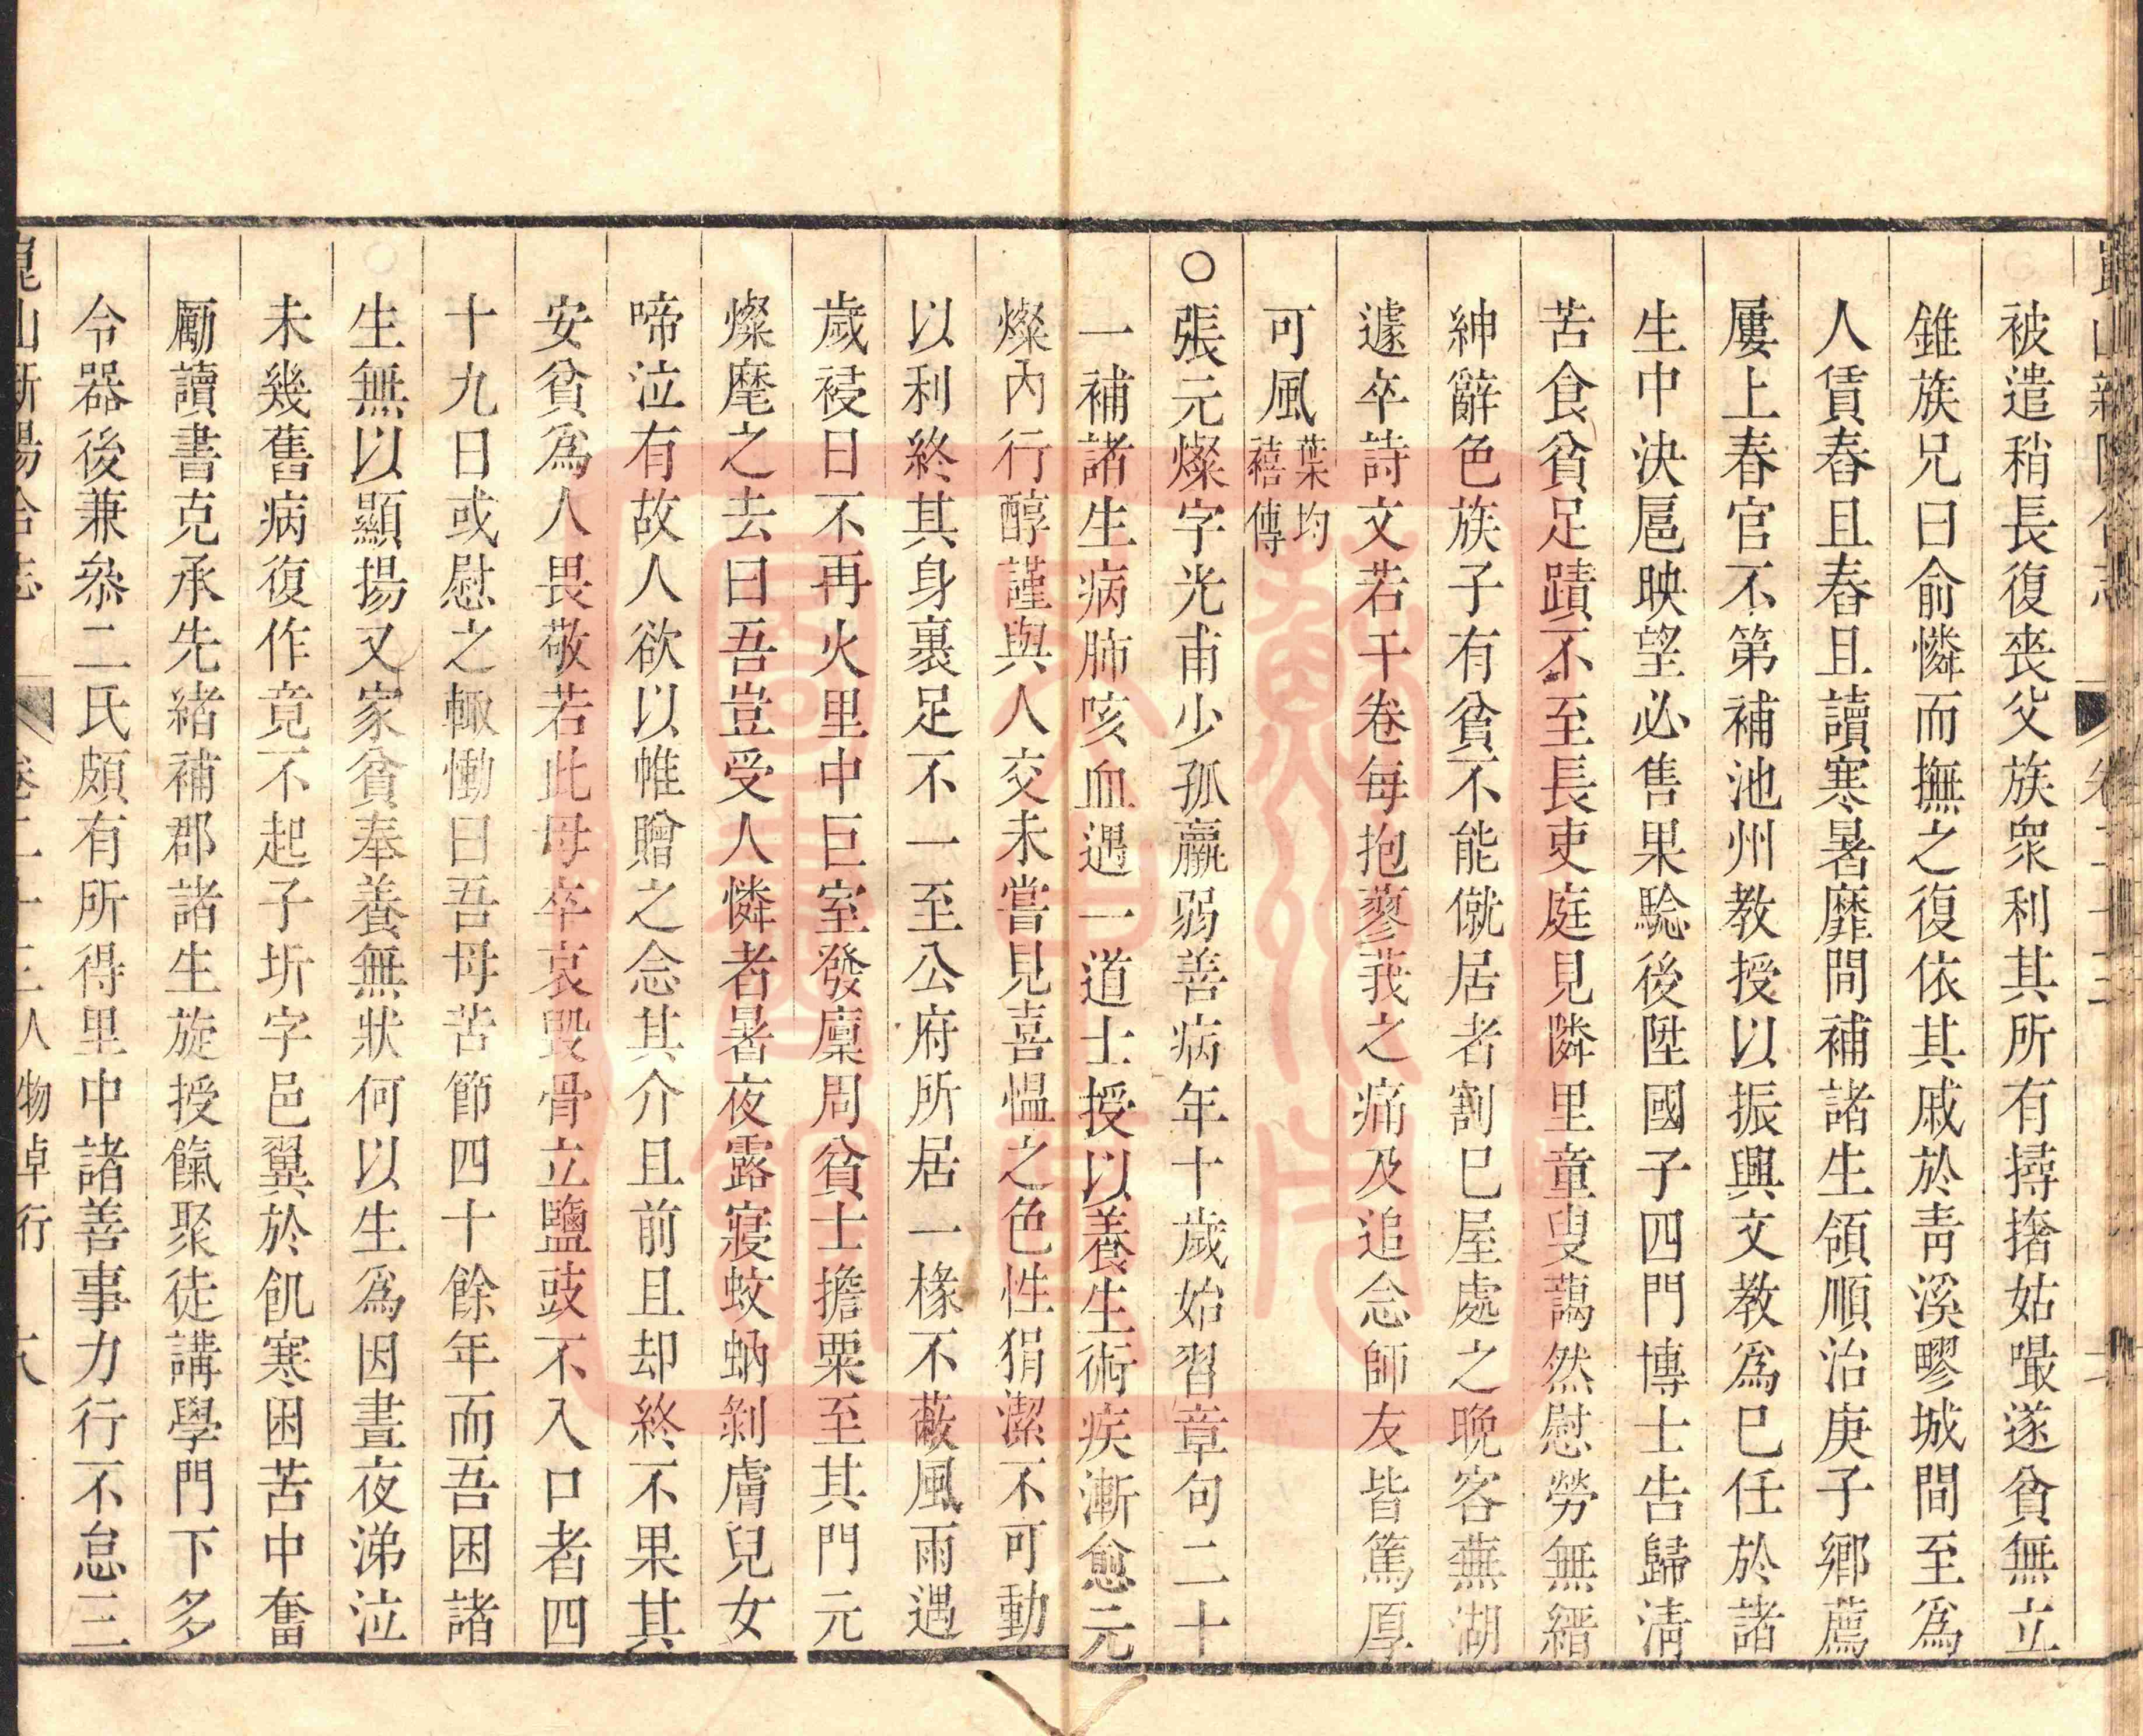 崑山新陽合志 卷二十三
被遣稍長復喪父族衆利其所有撏撦姑嘬遂貧無立
錐族兄曰俞憐而撫之復依其戚於靑溪疁城間至為
人賃舂且舂且讀寒暑靡間補諸生領順治庚子鄉薦
屢上春官不第補池州教授以振興文教爲巳任於諸
生中決扈映望必售果驗後陞國子四門博士告歸淸
苦食貧足蹟不至長吏庭見隣里童叟藹然慰勞無縉
紳辭色族子有貧不能僦居者割巳屋處之晚客蕪湖
遽卒詩文若干卷每抱蓼莪之痛及追念師友皆篤厚
可風葉均禧傳
○張元燦字光甫少孤羸弱善病年十歲始習章句二十
一補諸生病肺咳血遇一道士授以養生術疾漸愈元
燦內行醇謹與人交未嘗見喜慍之色性狷潔不可動
以利終其身裹足不一至公府所居一椽不蔽風雨遇
歲祲日不再火里中巨室發廩周貧士擔粟至其門元
燦麾之去曰吾豈受人憐者暑夜露寢蚊蚋剝膚兒女
啼泣有故人欲以帷贈之念其介且前且却終不果其
安貧爲人畏敬若此母卒哀毀骨立鹽豉不入口者四
十九日或慰之輙慟曰吾母苦節四十餘年而吾困諸
生無以顯揚又家貧奉養無狀何以生爲因晝夜涕泣
未幾舊病復作竟不起子圻字邑翼於飢寒困苦中奮
勵讀書克承先緒補郡諸生旋授餼聚徒講學門下多
令器後兼叅二氏頗有所得里中諸善事力行不怠三
崑山新陽合志 卷二十三人物卓行 六